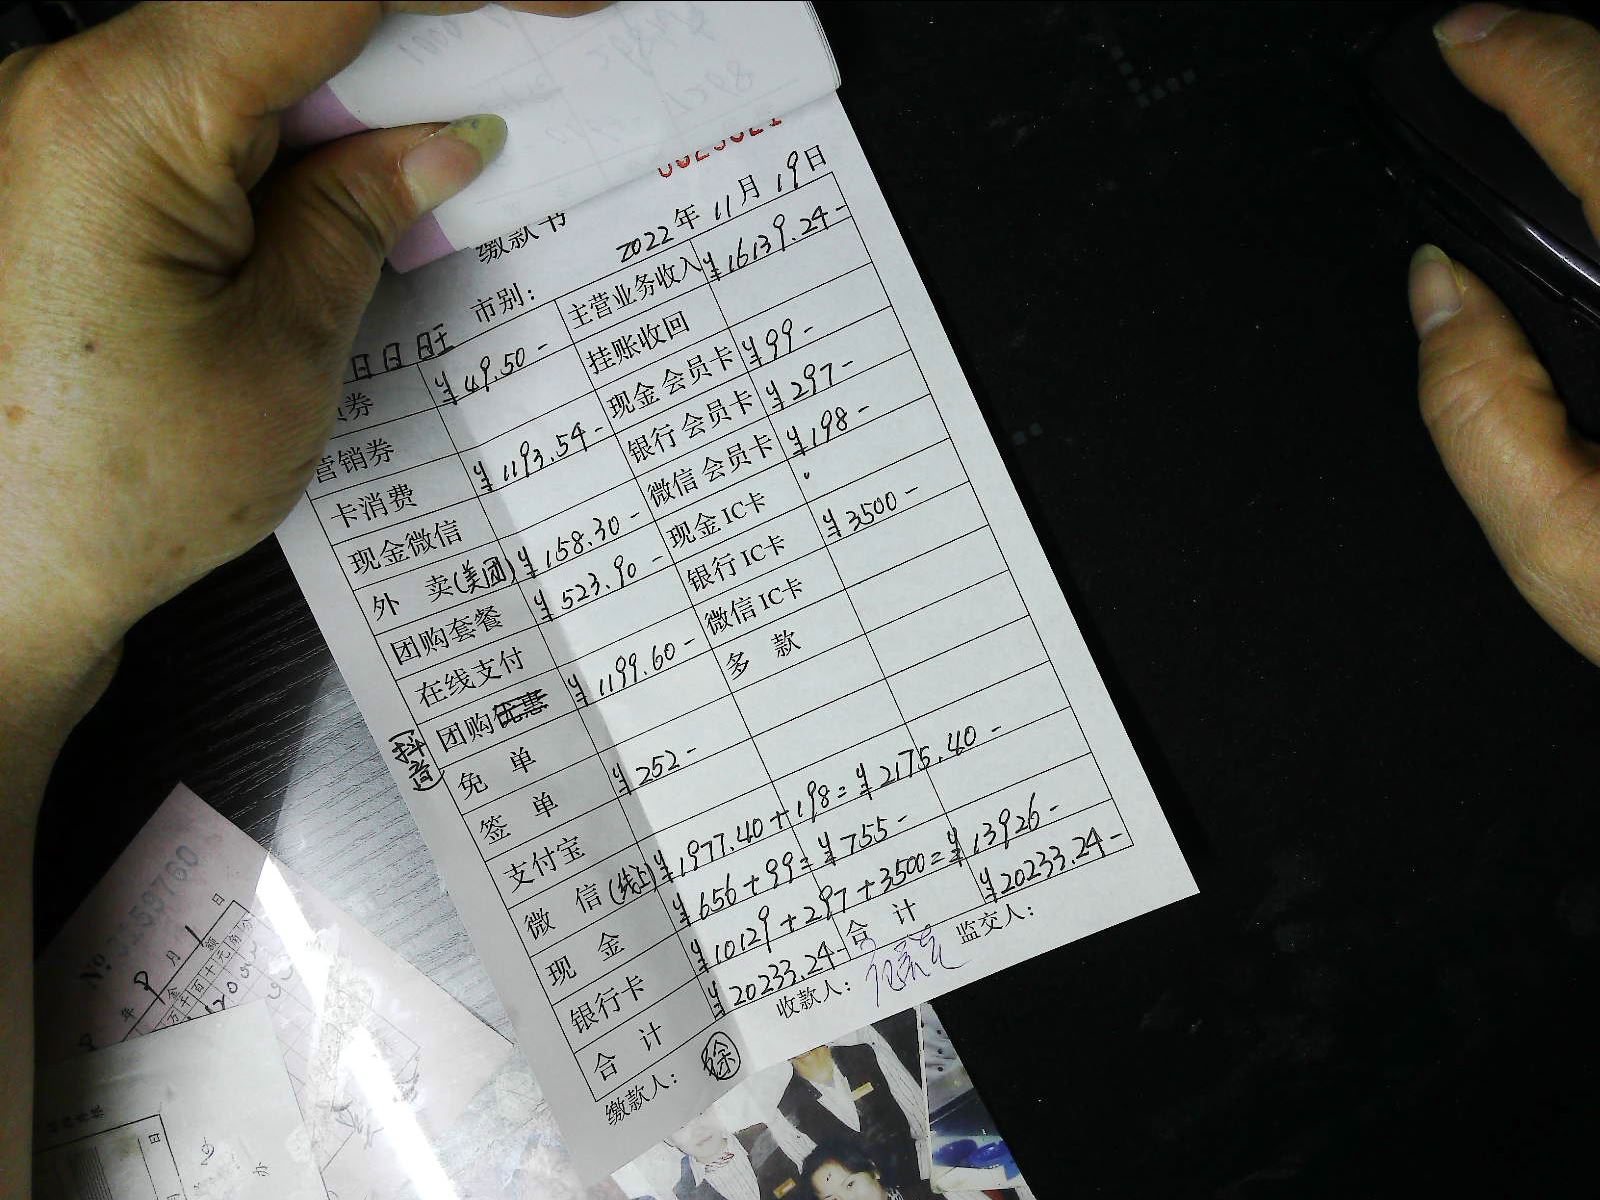 缴款书
2022年11月19日
日日旺 市别：
券 ¥49.50- 主营业务收入 ¥16139.24-
营销券 挂账收回
卡消费 ¥1193.54- 现金会员卡 ¥99-
现金微信 银行会员卡 ¥297-
外 卖(美团) ¥158.30- 微信会员卡 ¥198-
团购套餐 ¥523.90- 现金IC卡
在线支付 银行IC卡 ¥3500-
团购 ¥1199.60- 微信IC卡
(抖音)
免 单 多 款
签 单 ¥252-
支付宝
微 信(线上) ¥1977.40+198=¥2175.40-
现 金 ¥656+99=¥755-
银行卡 ¥10129+297+3500=¥13926-
合 计 ¥20233.24- 合 计 ¥20233.24-
缴款人： 徐 收款人： 监交人：